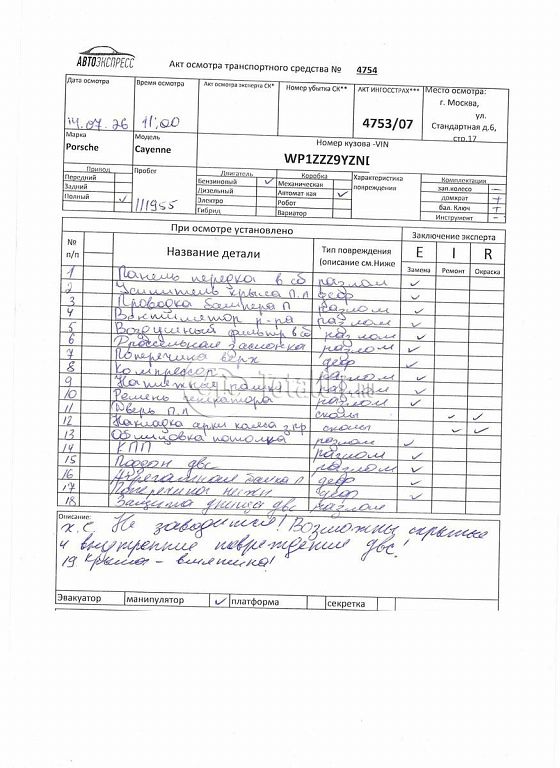 АВТОЭКСПРЕСС
Акт осмотра транспортного средства № 4754
Дата осмотра
Время осмотра
Акт осмотра эксперта СК*
Номер убытка СК**
АКТ ИНГОССТРАХ***
Место осмотра:
14.07.26
11,00
4753/07
г. Москва,
ул.
Стандартная д.6,
стр.17
Марка
Модель
Номер кузова -VIN
Porsche
Cayenne
WP1ZZZ9YZNI
Привод
Пробег
Двигатель
Коробка
Характеристика повреждения
Комплектация
Передний
Бензиновый ✓
Механическая
зап.колесо –
Задний
Дизельный
Автомат кая ✓
домкрат +
Полный ✓
111955
Электро
Робот
бал. Ключ +
Гибрид
Вариатор
Инструмент –
При осмотре установлено
Заключение эксперта
№ п/п
Название детали
Тип повреждения (описание см.Ниже
E
I
R
Замена
Ремонт
Окраска
1 Панель передка в сб разлом ✓
2 Усилитель крыла П.Л деф ✓
3 Проводка бампера П разлом ✓
4 Вентилятор р-ра разлом ✓
5 Воздушный фильтр в сб разлом ✓
6 Дроссельная заслонка разлом ✓
7 Поперечина верх деф ✓
8 Компрессор разлом ✓
9 разлом ✓
10 Ремень генератора разлом ✓
11 Дверь П.Л сколы ✓ ✓
12 Накладка арки колеса з пр сколы ✓ ✓
13 Облицовка потолка разлом ✓
14 КПП разлом ✓
15 Поддон двс разлом ✓
16 Агрегатная балка П деф ✓
17 Поперечина нижн деф ✓
18 Защита днища двс разлом ✓
Описание:
х.с. Не заводится! Возможны скрытые
и внутренние повреждение двс!
19 крыша – вмятина!
Эвакуатор
манипулятор
✓ платформа
секретка